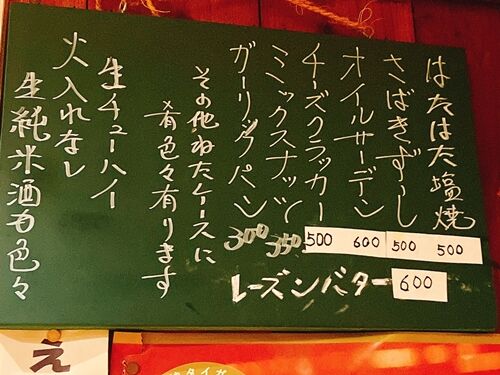 はたはた塩焼 500
さばきずーし 500
オイルサーデン 600
チーズクラッカー 500
ミックスナッツ 350
ガーリックパン 300
レーズンバター 600
その他ねたケースに
色々有ります
生チューハイ
火入れなし
生純米酒も色々
え
タイガ